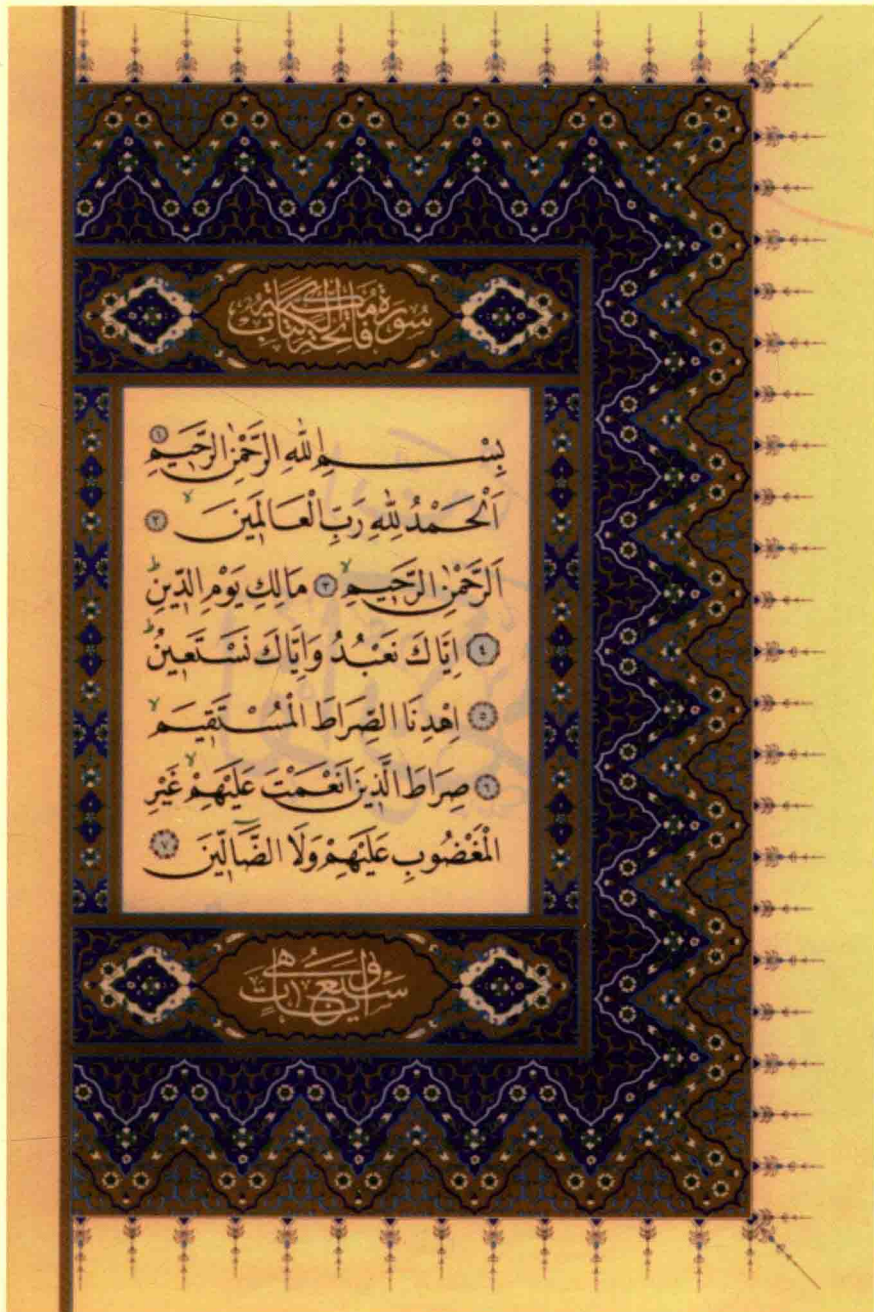 سُورَةُ فَاتِحَةِ الْكِتَابِ مَكِّيَّةٌ
بِسْمِ اللّٰهِ الرَّحْمٰنِ الرَّحٖيمِ ﴿١﴾
اَلْحَمْدُ لِلّٰهِ رَبِّ الْعَالَمٖينَۙ ﴿٢﴾
اَلرَّحْمٰنِ الرَّحٖيمِۙ ﴿٣﴾ مَالِكِ يَوْمِ الدّٖينِۜ
﴿٤﴾ اِيَّاكَ نَعْبُدُ وَاِيَّاكَ نَسْتَعٖينُۜ
﴿٥﴾ اِهْدِنَا الصِّرَاطَ الْمُسْتَقٖيمَۙ
﴿٦﴾ صِرَاطَ الَّذٖينَ اَنْعَمْتَ عَلَيْهِمْۙ غَيْرِ
الْمَغْضُوبِ عَلَيْهِمْ وَلَا الضَّٓالّٖينَ ﴿٧﴾
وَهِيَ سَبْعُ اٰيَاتٍ